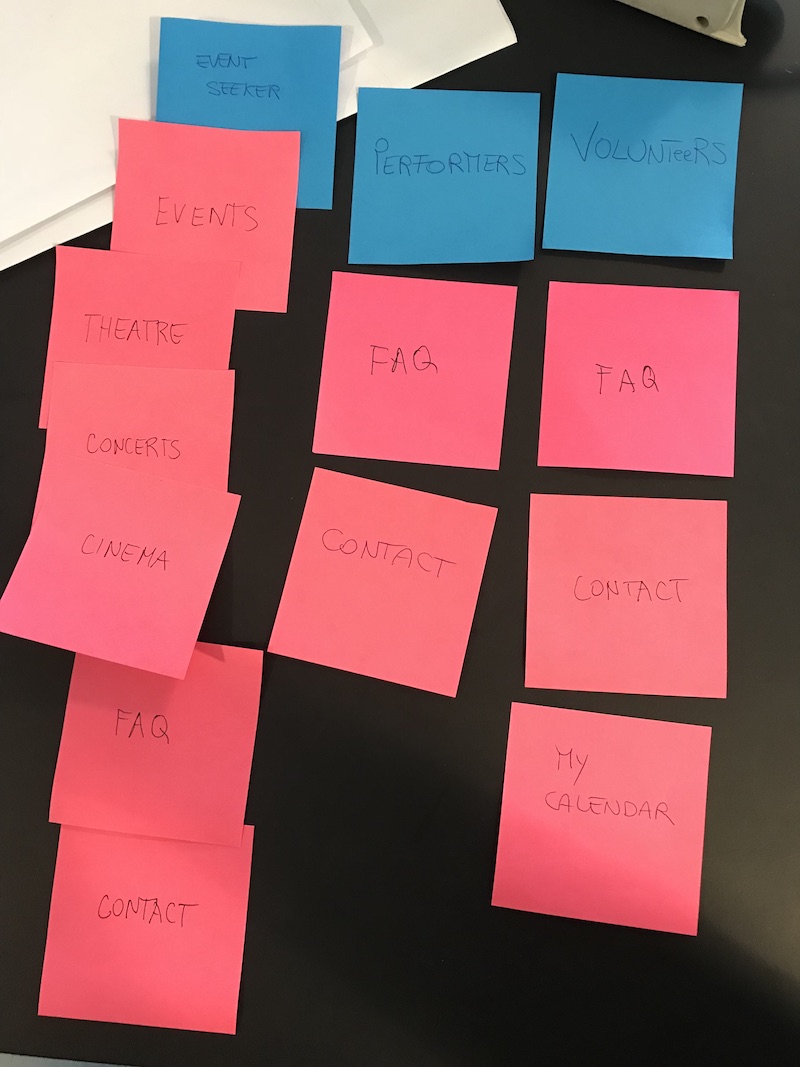 EVENT
SEEKER
EVENTS
THEATRE
CONCERTS
CINEMA
FAQ
CONTACT
PERFORMERS
FAQ
CONTACT
VOLUNTeeRS
FAQ
CONTACT
My
CALENDAR